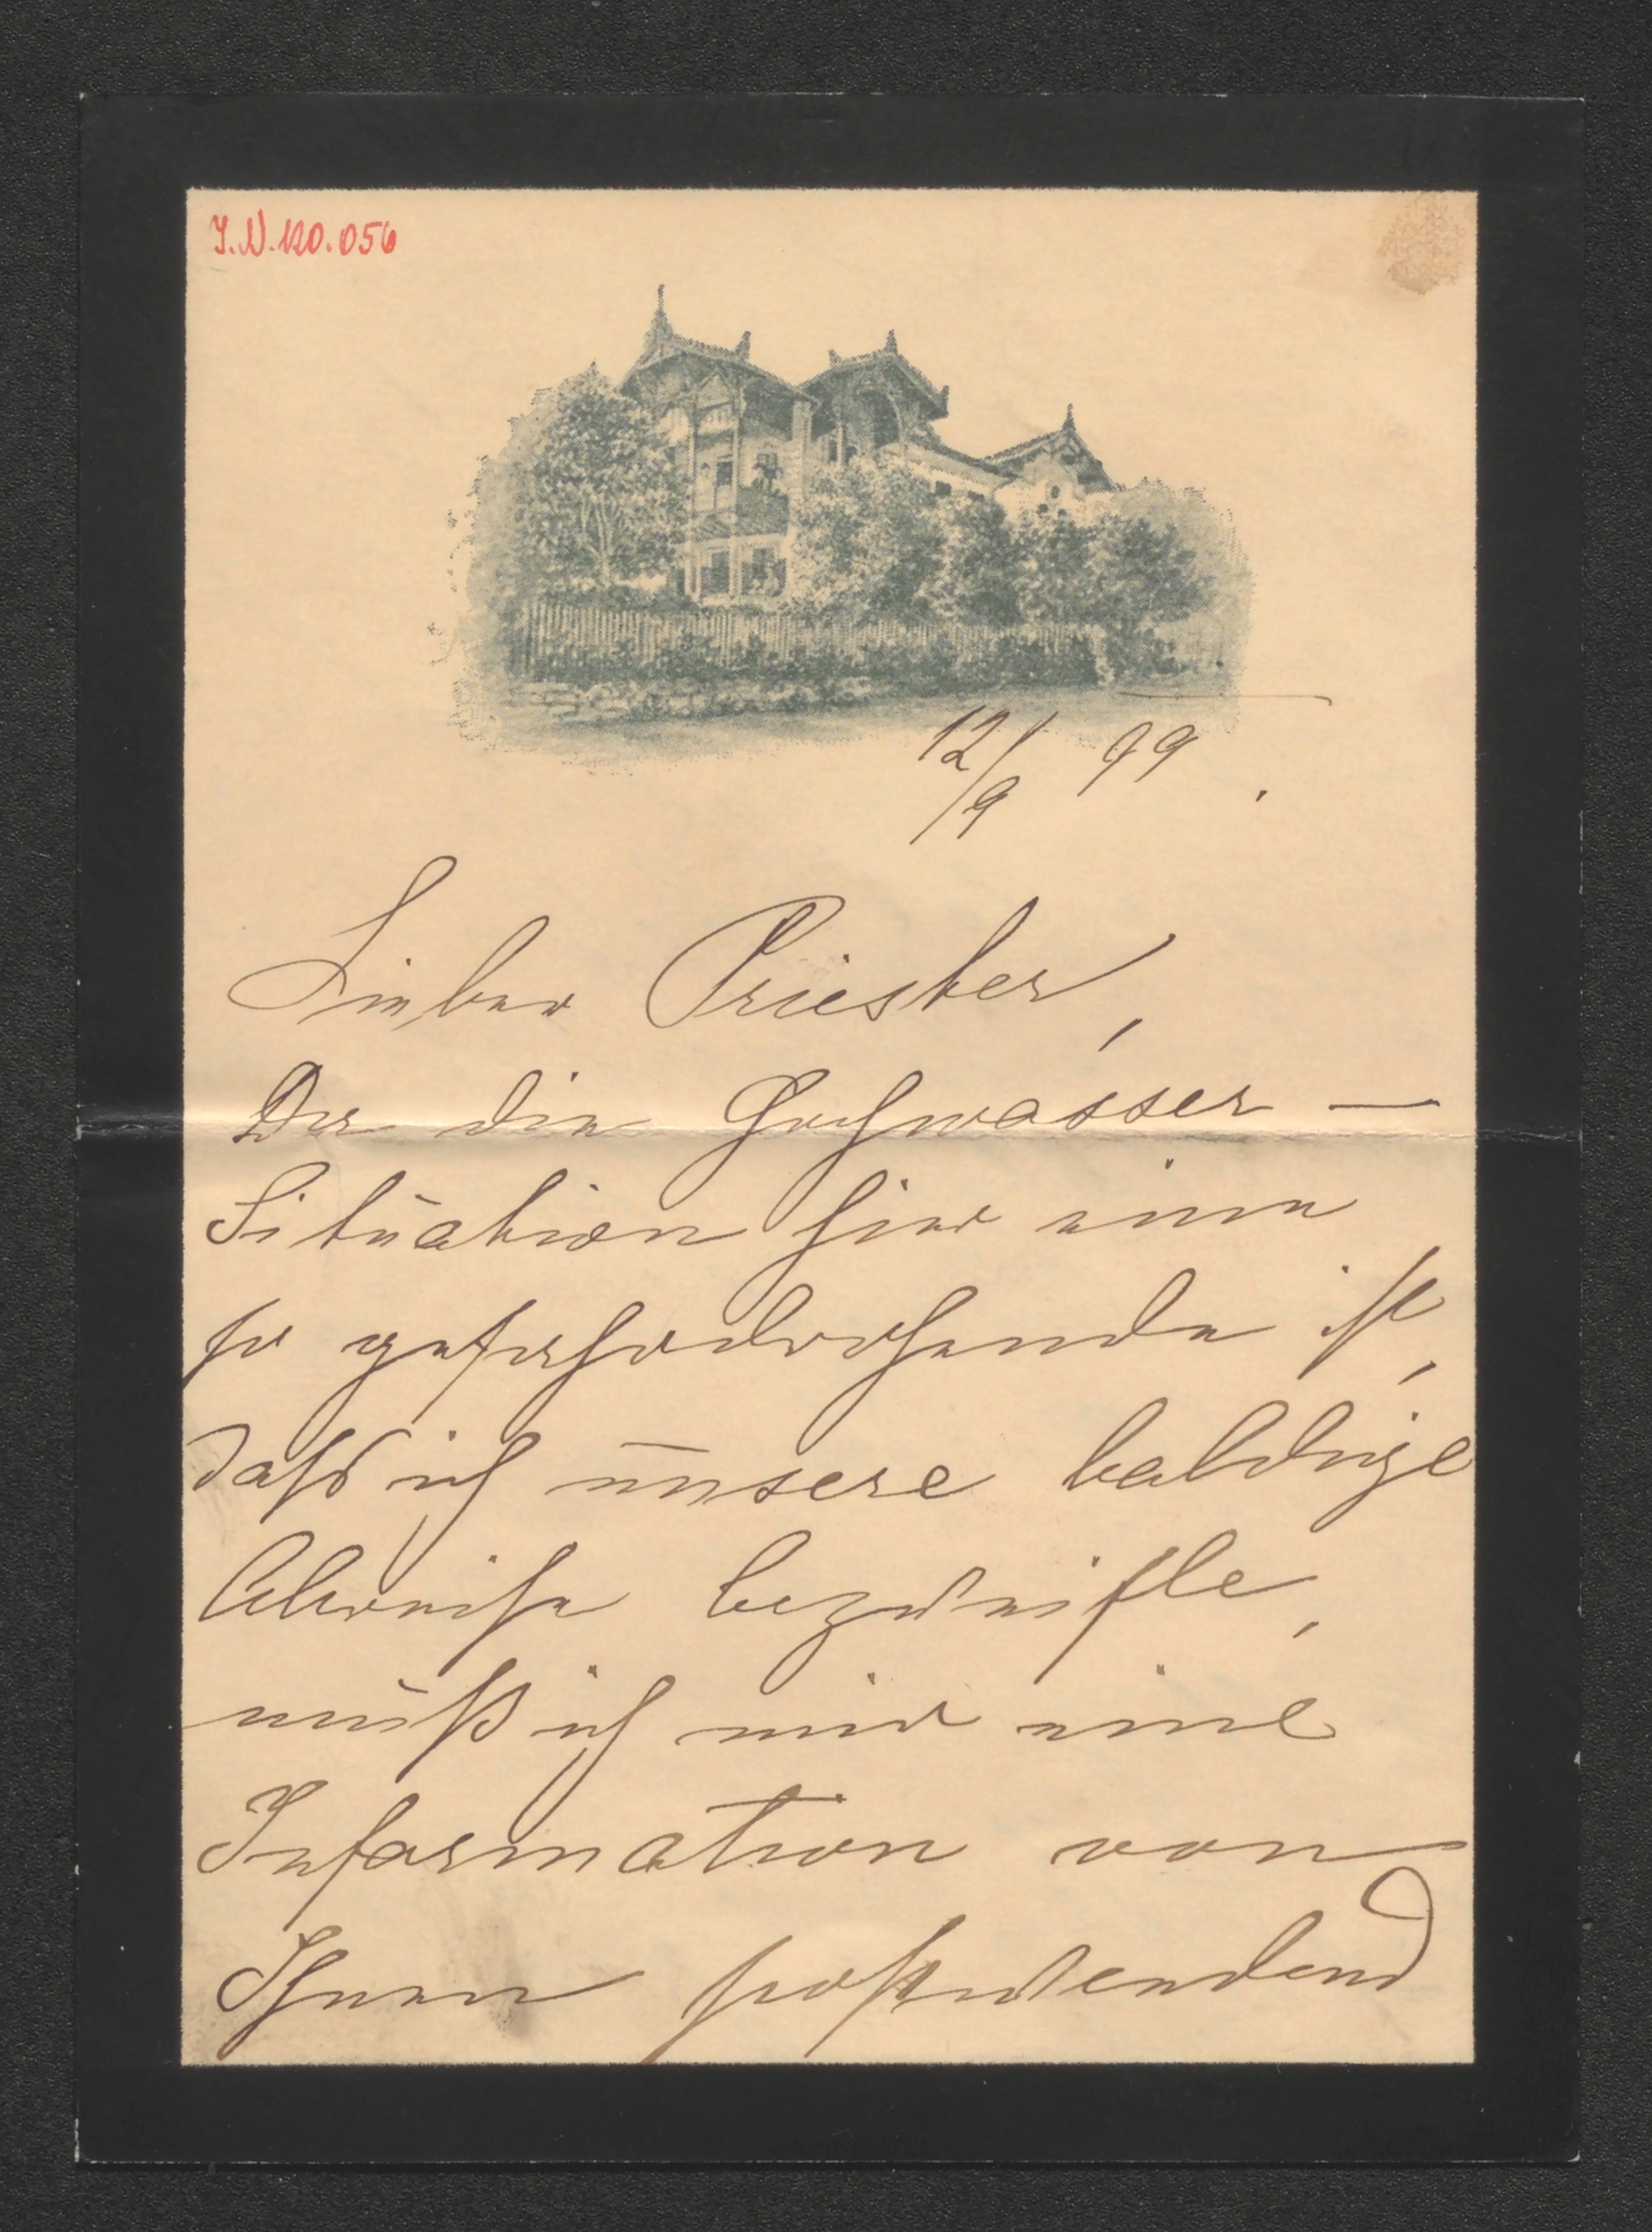 I.N. 120.056
12/9 99.
Lieber Priester,
Da die Hochwasser —
Situation hier eine
so gefahrdrohende ist,
daß ich unsere baldige
Abreise bezweifle,
muß ich mir eine
Information von
Ihnen postwendend